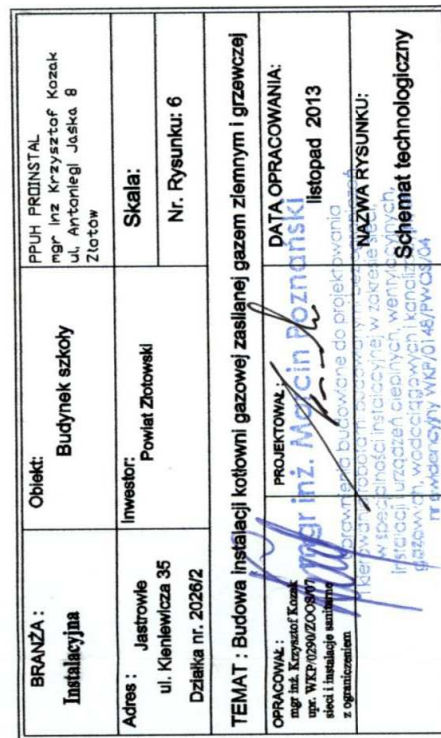 BRANŻA :
Instalacyjna
Obiekt:
Budynek szkoły
PPUH PROINSTAL
mgr inż Krzysztof Kozak
ul. Antoniegi Jaśka 8
Złotów
Adres : Jastrowie
ul. Kieniewicza 35
Działka nr. 2026/2
Inwestor:
Powiat Złotowski
Skala:
Nr. Rysunku: 6
TEMAT : Budowa instalacji kotłowni gazowej zasilanej gazem ziemnym i grzewczej
OPRACOWAŁ :
mgr inż. Krzysztof Kozak
upr. WKP/0290/ZOOS/07
sieci i instalacje sanitarne
z ograniczeniem
PROJEKTOWAŁ :
mgr inż. Marcin Poznański
uprawnienia budowlane do projektowania
i kierowania robotami budowlanymi bez ograniczeń
w specjalności instalacyjnej w zakresie sieci,
instalacji i urządzeń cieplnych, wentylacyjnych,
gazowych, wodociągowych i kanalizacyjnych
nr ewidencyjny WKP/0148/PWOS/04
DATA OPRACOWANIA:
listopad 2013
NAZWA RYSUNKU:
Schemat technologiczny